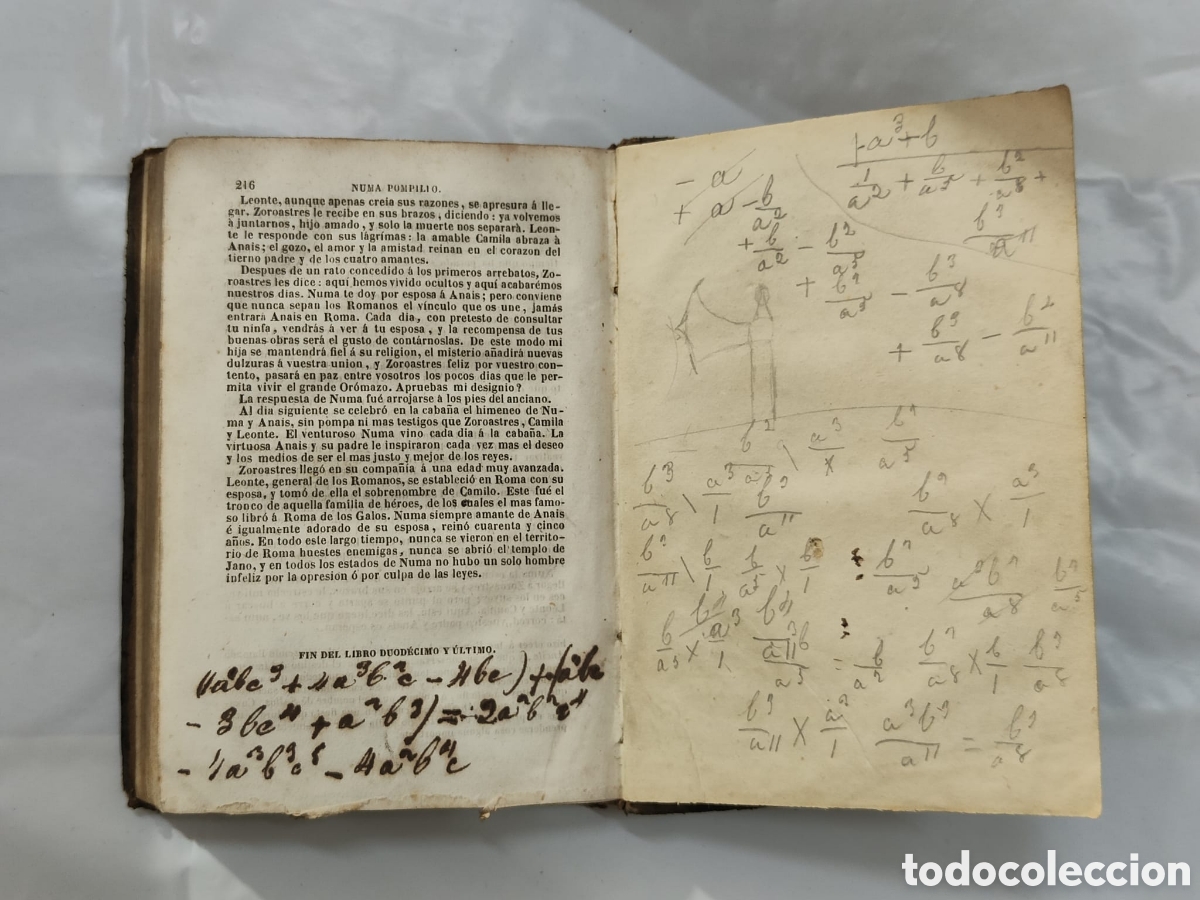 216 NUMA POMPILIO.
Leonte, aunque apenas creia sus razones, se apresura á lle-
gar. Zoroastres le recibe en sus brazos, diciendo: ya volvemos
à juntarnos, hijo amado, y solo la muerte nos separarà. Leon-
te le responde con sus làgrimas: la amable Camila abraza à
Anais; el gozo, el amor y la amistad reinan en el corazon del
tierno padre y de los cuatro amantes.
Despues de un rato concedido á los primeros arrebatos, Zo-
roastres les dice: aqui hemos vivido ocultos y aqui acabarémos
nuestros dias. Numa te doy por esposa á Anais; pero conviene
que nunca sepan los Romanos el vínculo que os une, jamás
entrará Anais en Roma. Cada dia, con pretesto de consultar
tu ninfa, vendrás á vér á tu esposa, y la recompensa de tus
buenas obras será el gusto de contárnoslas. De este modo mi
hija se mantendrá fiel á su religion, el misterio añadirá nuevas
dulzuras á vuestra union, y Zoroastres feliz por vuestro con-
tento, pasará en paz entre vosotros los pocos dias que le per-
mita vivir el grande Orómazo. Apruebas mi designio?
La respuesta de Numa fué arrojarse à los pies del anciano.
Al dia siguiente se celebró en la cabaña el himeneo de Nu-
ma y Anais, sin pompa ni mas testigos que Zoroastres, Camila
y Leonte. El venturoso Numa vino cada dia á la cabaña. La
virtuosa Anais y su padre le inspiraron cada vez mas el deseo
y los medios de ser el mas justo y mejor de los reyes.
Zoroastres llegó en su compañia á una edad muy avanzada.
Leonte, general de los Romanos, se estableció en Roma con su
esposa, y tomó de ella el sobrenombre de Camilo. Este fué el
tronco de aquella familia de héroes, de los cuales el mas famo-
so libró á Roma de los Galos. Numa siempre amante de Anais
é igualmente adorado de su esposa, reinó cuarenta y cinco
años. En todo este largo tiempo, nunca se vieron en el territo-
rio de Roma huestes enemigas, nunca se abrió el templo de
Jano, y en todos los estados de Numa no hubo un solo hombre
infeliz por la opresion ó por culpa de las leyes.
FIN DEL LIBRO DUODÉCIMO Y ÚLTIMO.
+ 4a³b²c - 4bc) +
- 3bc⁴ + a²b³) = 2a²b²c⁴
- 4a²b⁴c
a³ + b
1/a² + b/a⁵ + b²/a⁸ +
b³/a¹¹
- a
+ a - b/a²
+ b/a² - b²/a⁵
+ b²/a⁵ - b³/a⁸
+ b³/a⁸ - b²/a¹¹
b³/a⁸ \ a³/1 b³/a¹¹ b³/a⁸ × a³/1
= b/a² b²/a⁸ × b/1 b³/a⁸
b³/a¹¹ × a³/1 a³b³/a¹¹ = b³/a⁸
todocoleccion